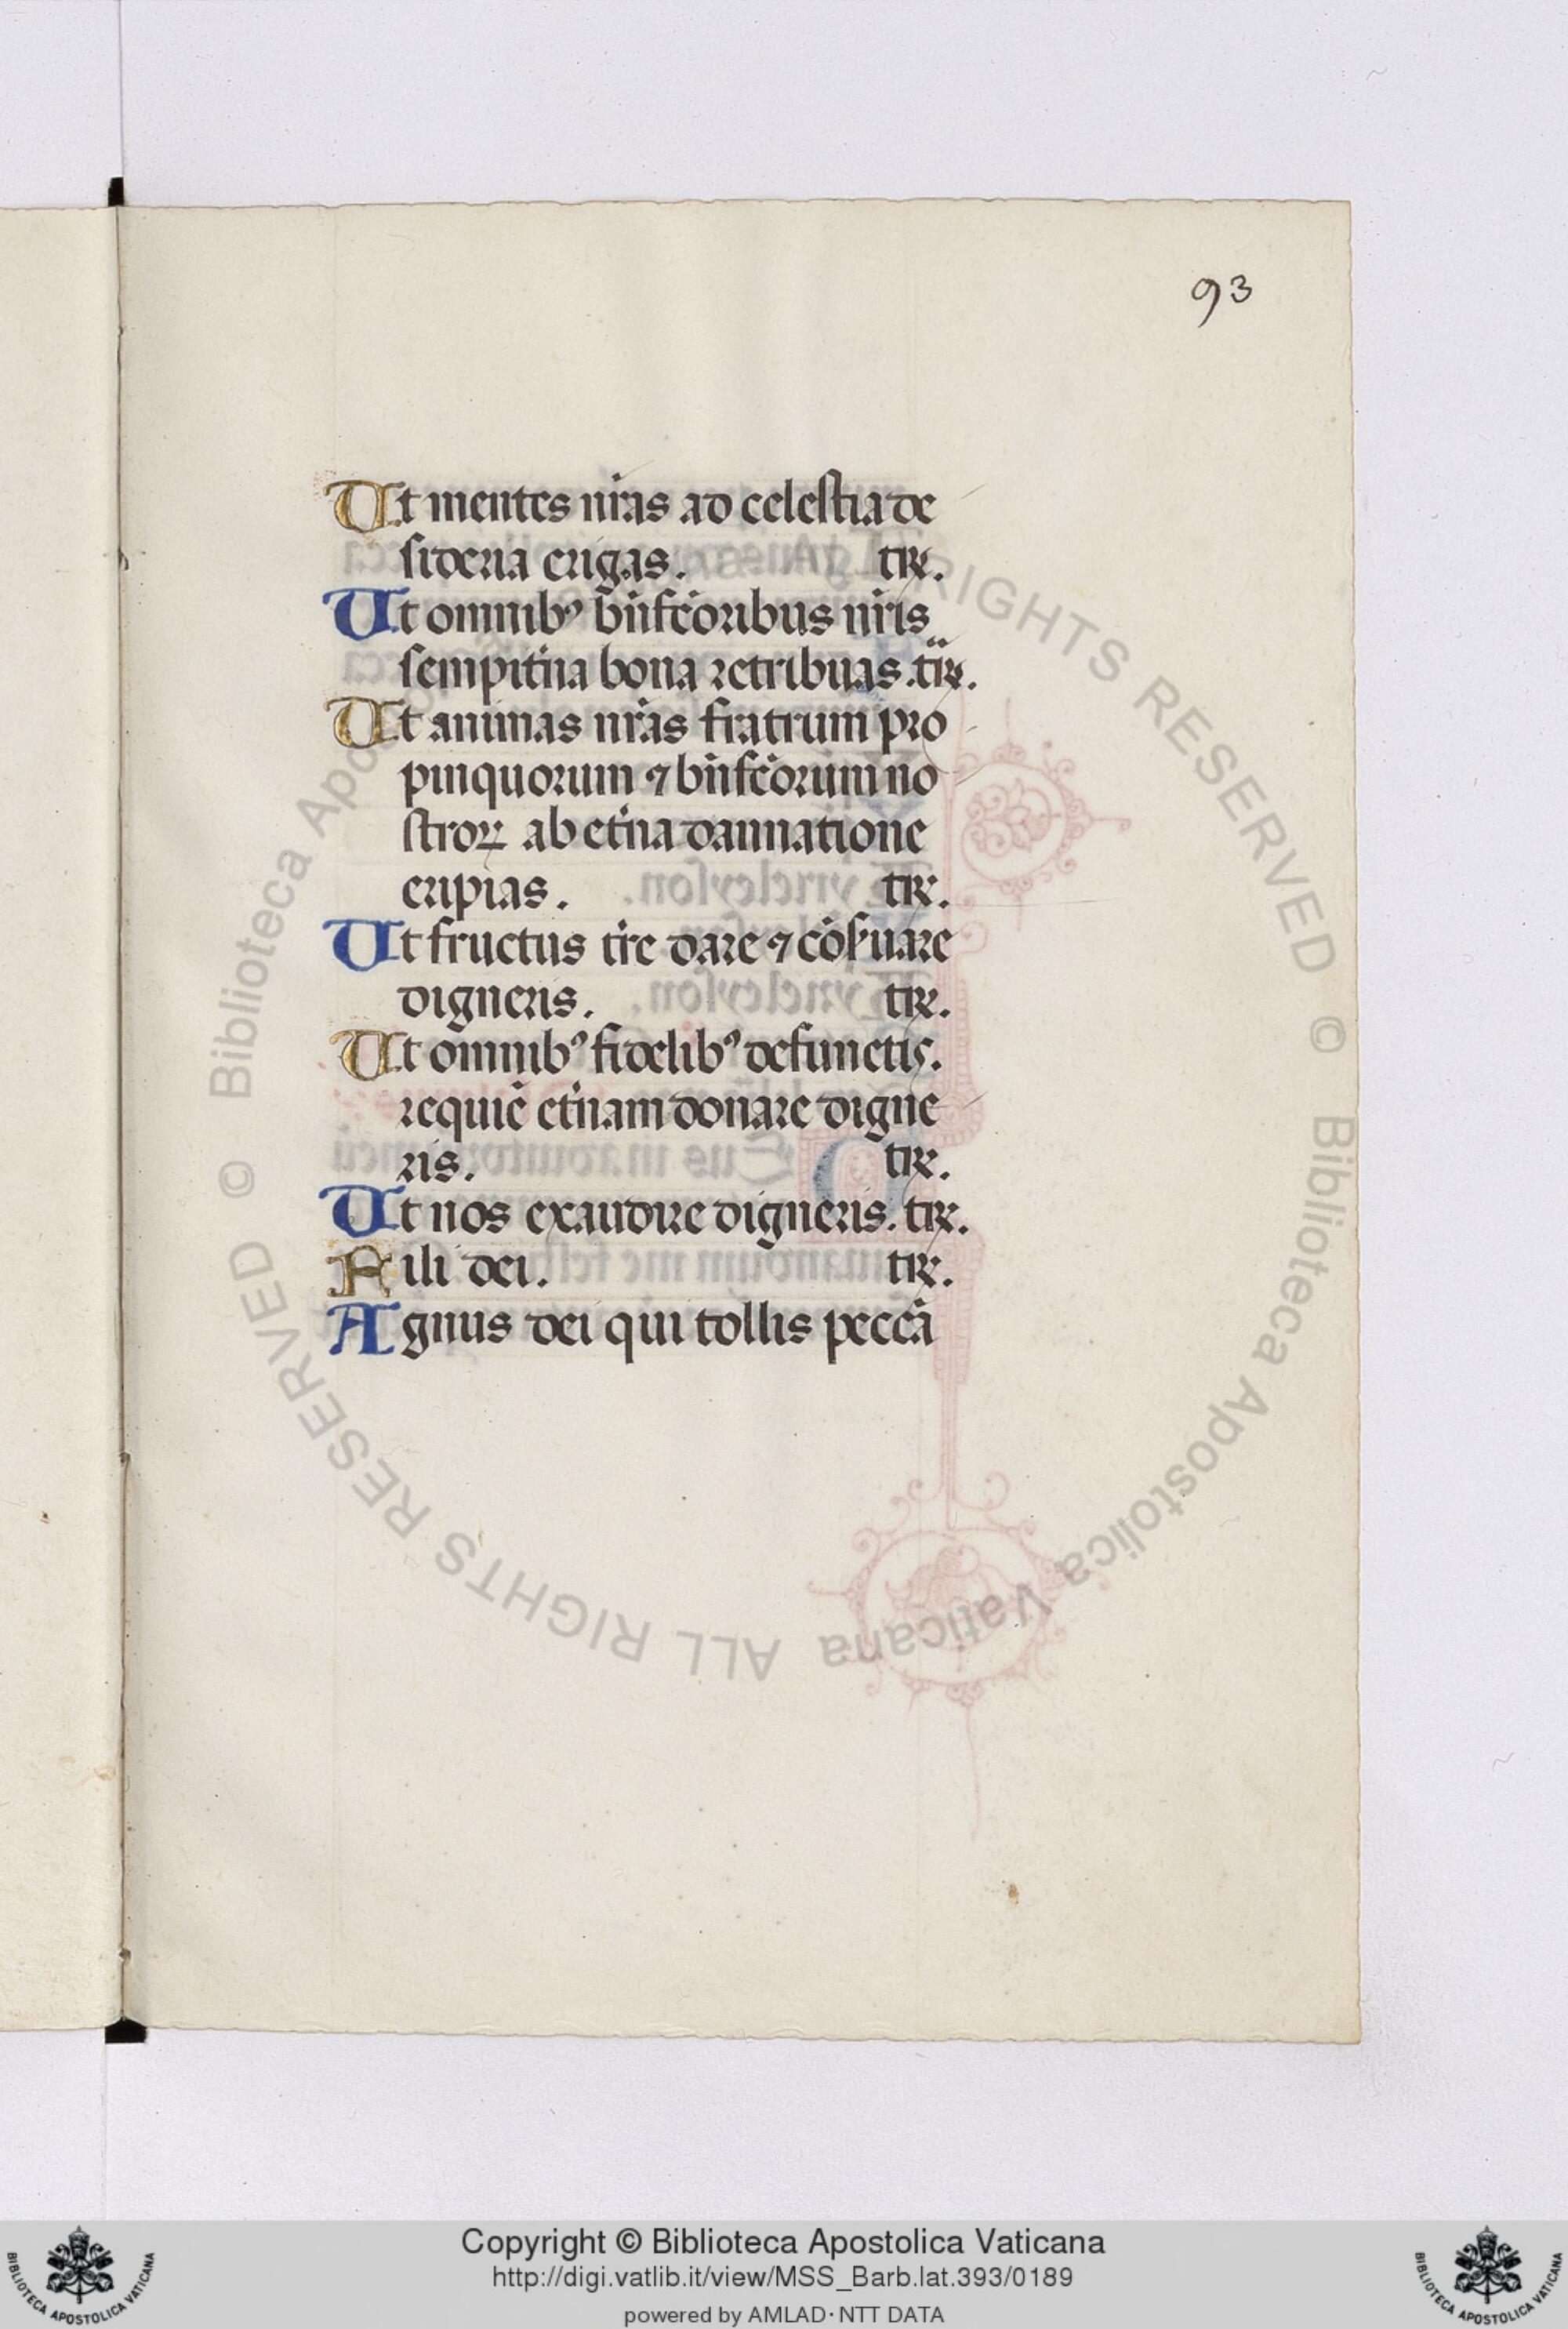 93
Ut mentes nr̄as ad celestia de
sideria erigas. tir̄.
Ut omnibꝰ bn̄fc̄oribus nr̄is
sempit̄na bona retribuas. tir̄.
Ut animas nr̄as fratrum pro
pinquorum ⁊ bn̄fc̄orum no
stroꝝ ab et̄na damnatione
eripias. tir̄.
Ut fructus tr̄e dare ⁊ cōs̄uare
digneris. tir̄.
Ut omnibꝰ fidelibꝰ defunctis.
requiē et̄nam donare digne
ris. tir̄.
Ut nos exaudire digneris. tir̄.
Fili dei. tir̄.
Agnus dei qui tollis peccā
© Biblioteca Apostolica Vaticana ALL RIGHTS RESERVED © Biblioteca Apostolica Vaticana ALL RIGHTS RESERVED
Copyright © Biblioteca Apostolica Vaticana
http://digi.vatlib.it/view/MSS_Barb.lat.393/0189
powered by AMLAD·NTT DATA
BIBLIOTECA APOSTOLICA VATICANA
BIBLIOTECA APOSTOLICA VATICANA